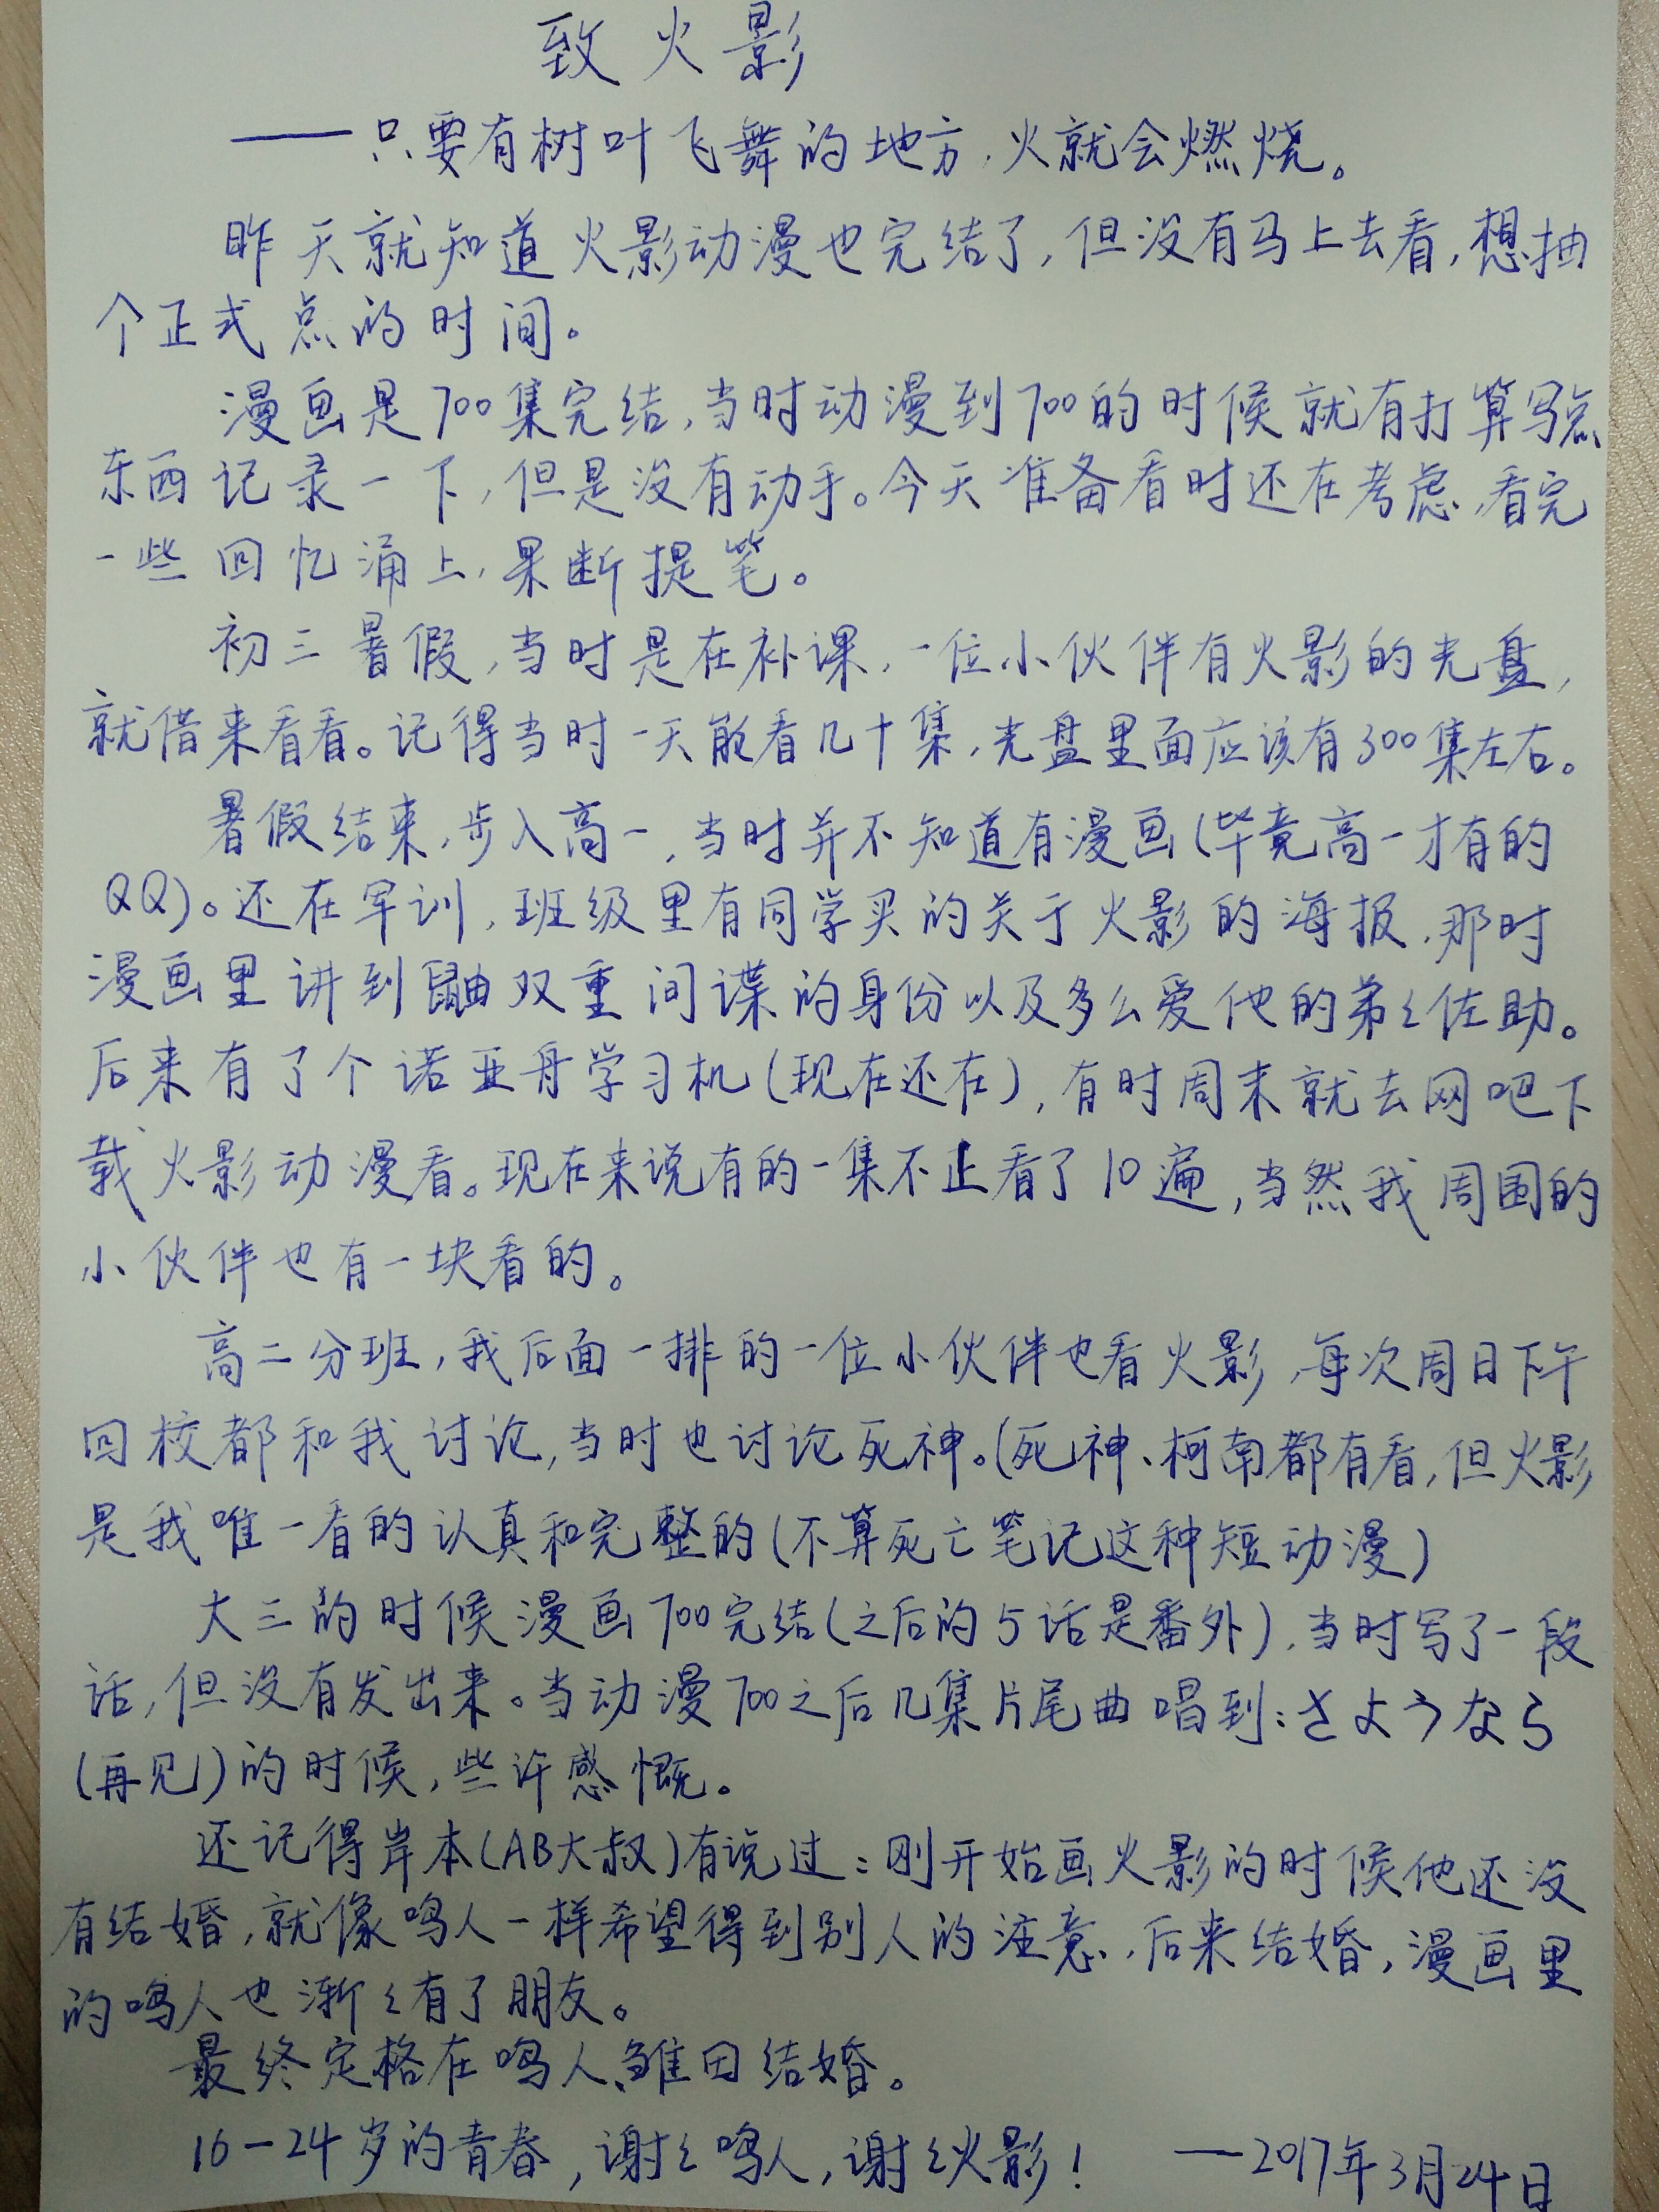 致火影
——只要有树叶飞舞的地方,火就会燃烧。
昨天就知道火影动漫也完结了,但没有马上去看,想抽
个正式点的时间。
漫画是700集完结,当时动漫到700的时候就有打算写点
东西记录一下,但是没有动手。今天准备看时还在考虑,看完
一些回忆涌上,果断提笔。
初三暑假,当时是在补课,一位小伙伴有火影的光盘,
就借来看看。记得当时一天能看几十集,光盘里面应该有300集左右。
暑假结束,步入高一,当时并不知道有漫画(毕竟高一才有的
QQ)。还在军训,班级里有同学买的关于火影的海报,那时
漫画里讲到鼬双重间谍的身份以及多么爱他的弟々佐助。
后来有了个诺亚舟学习机(现在还在),有时周末就去网吧下
载火影动漫看。现在来说有的一集不止看了10遍,当然我周围的
小伙伴也有一块看的。
高二分班,我后面一排的一位小伙伴也看火影,每次周日下午
回校都和我讨论,当时也讨论死神。(死神、柯南都有看,但火影
是我唯一看的认真和完整的(不算死亡笔记这种短动漫)
大三的时候漫画700完结(之后的5话是番外),当时写了一段
话,但没有发出来。当动漫700之后几集片尾曲唱到:さようなら
(再见)的时候,些许感慨。
还记得岸本(AB大叔)有说过:刚开始画火影的时候他还没
有结婚,就像鸣人一样希望得到别人的注意,后来结婚,漫画里
的鸣人也渐々有了朋友。
最终定格在鸣人、雏田结婚。
16—24岁的青春,谢々鸣人,谢々火影! —2017年3月24日